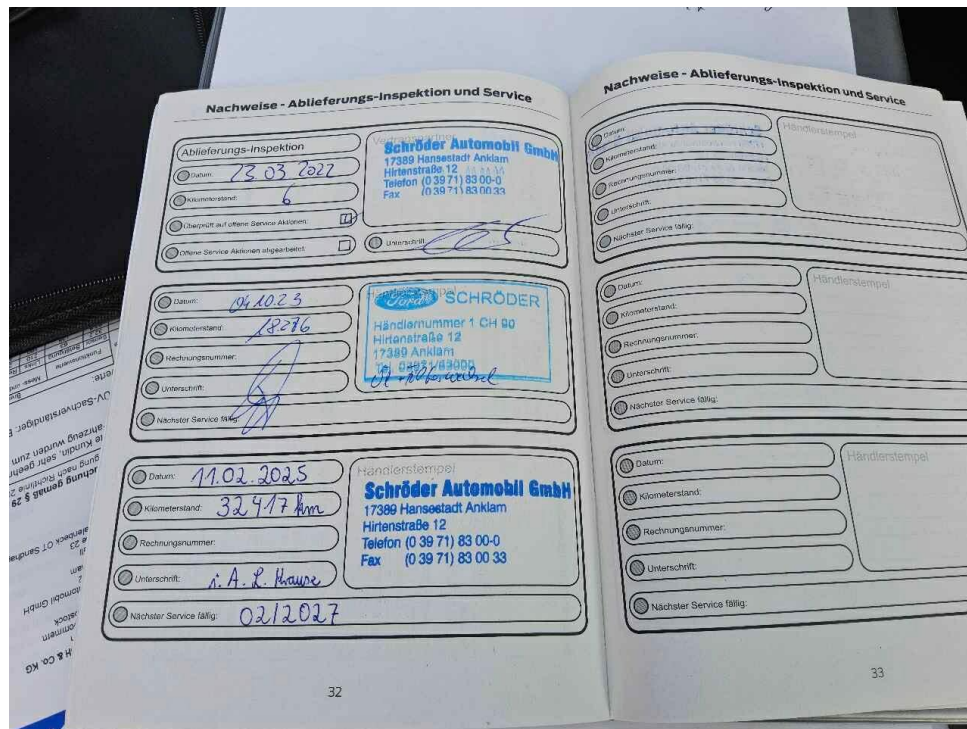 Nachweise - Ablieferungs-Inspektion und Service
Ablieferungs-Inspektion
Datum: 23 03 2022
Kilometerstand: 6
Überprüft auf offene Service Aktionen:
Offene Service Aktionen abgearbeitet:
Vertragspartner
Schröder Automobil GmbH
17389 Hansestadt Anklam
Hirtenstraße 12
Telefon (0 39 71) 83 00-0
Fax (0 39 71) 83 00 33
Unterschrift
Datum: 04.10.23
Kilometerstand: 18276
Rechnungsnummer:
Unterschrift:
Nächster Service fällig:
Händlerstempel
Ford SCHRÖDER
Händlernummer 1 CH 90
Hirtenstraße 12
17389 Anklam
Tel. 03971/83000
Datum: 11.02.2025
Kilometerstand: 32417 km
Rechnungsnummer:
Unterschrift: i. A. L. Krause
Nächster Service fällig: 02/2027
Händlerstempel
Schröder Automobil GmbH
17389 Hansestadt Anklam
Hirtenstraße 12
Telefon (0 39 71) 83 00-0
Fax (0 39 71) 83 00 33
32
Nachweise - Ablieferungs-Inspektion und Service
Datum:
Kilometerstand:
Rechnungsnummer:
Unterschrift:
Nächster Service fällig:
Händlerstempel
Datum:
Kilometerstand:
Rechnungsnummer:
Unterschrift:
Nächster Service fällig:
Händlerstempel
Datum:
Kilometerstand:
Rechnungsnummer:
Unterschrift:
Nächster Service fällig:
Händlerstempel
33